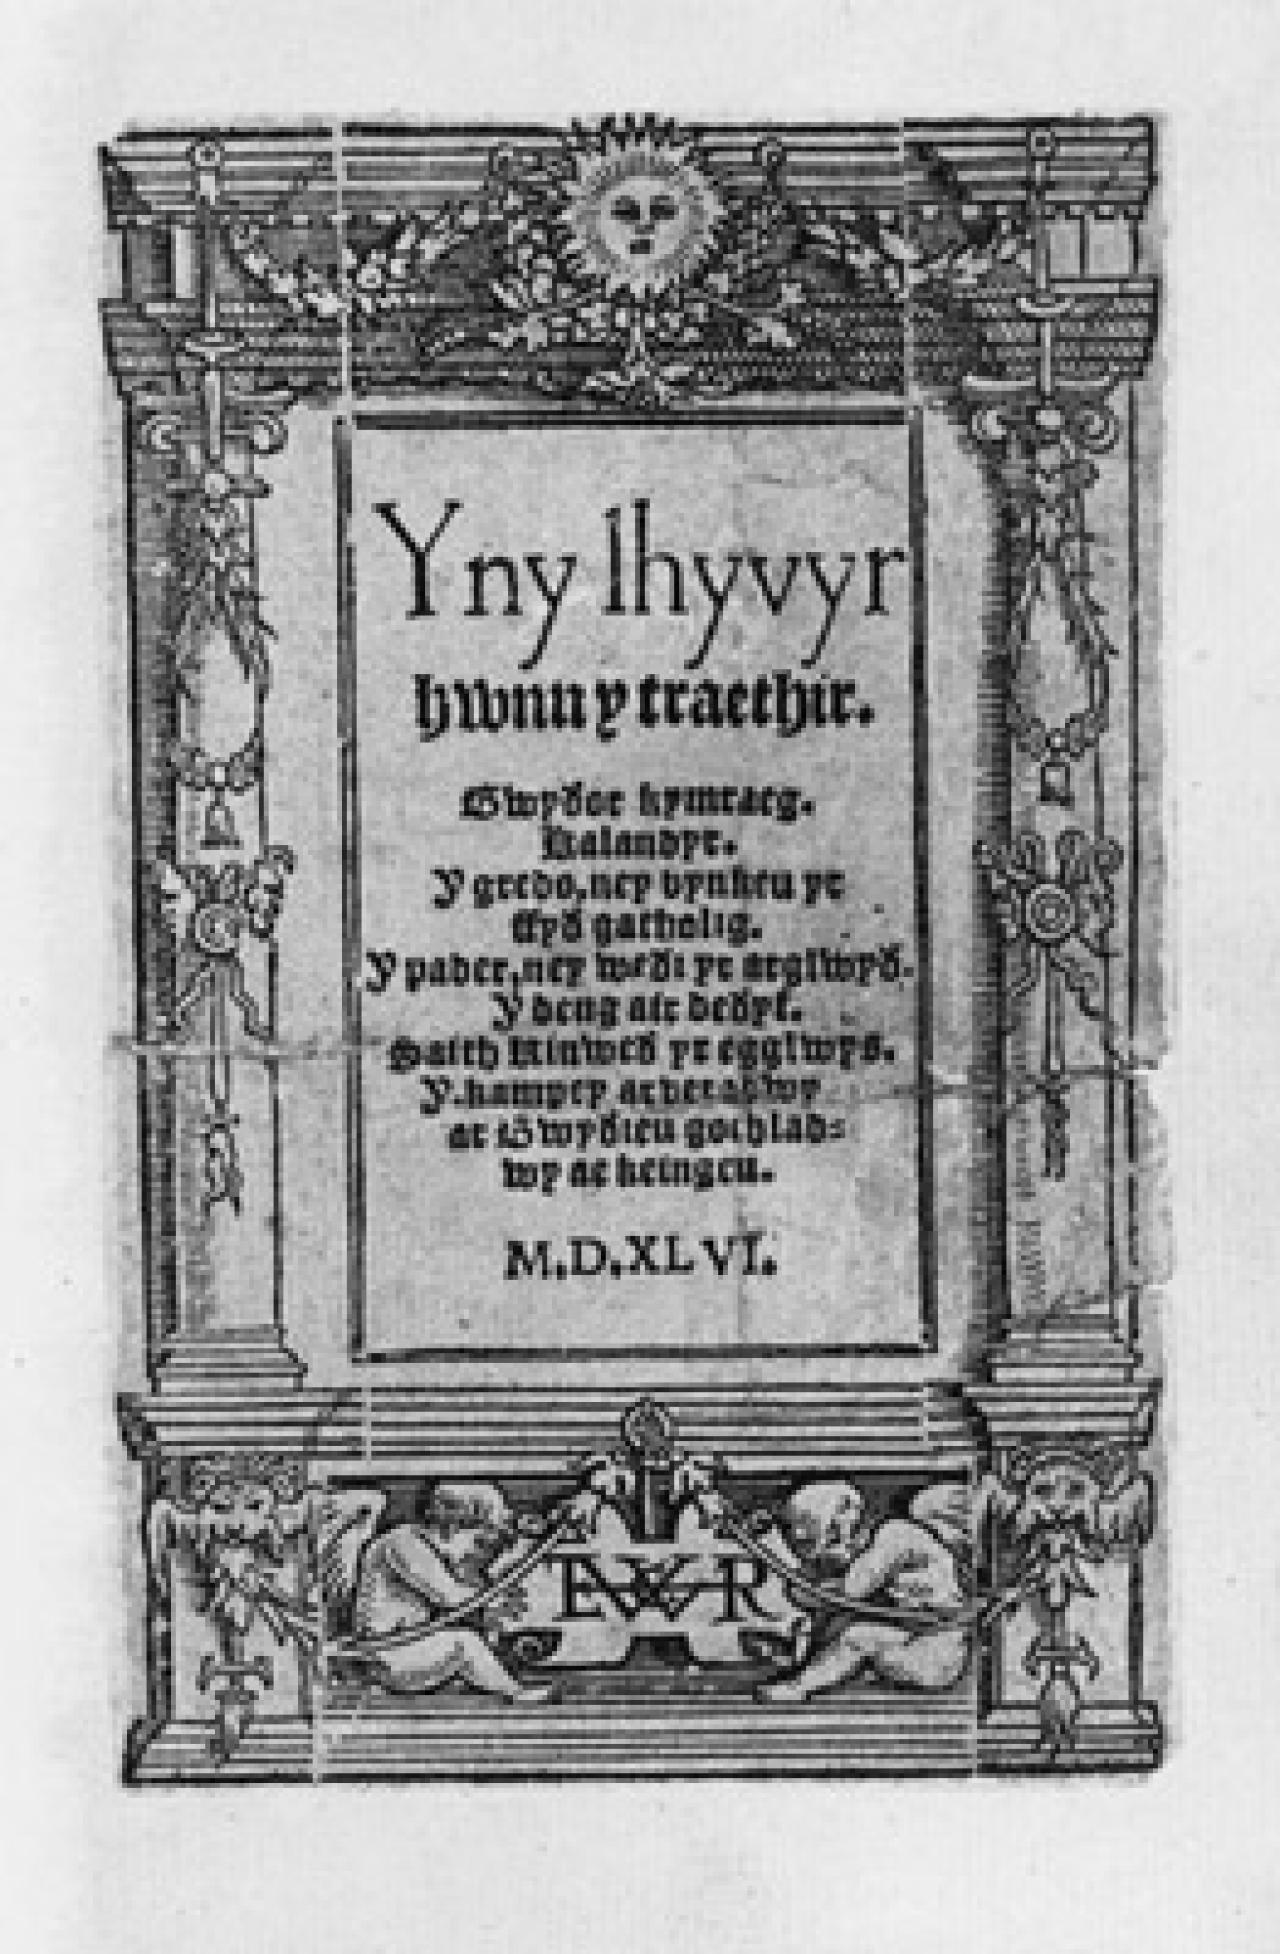 Yny lhyvyr
hwnn y traethir.
Gwyðor kymraeg.
Kalandyr.
Y gredo, ney bynkeu yr
ffyð gatholig.
Y pader, ney weði yr arglwyð.
Y deng air deðyf.
Saith Rinweð yr egglwys.
Y kampey arveradwy
ar Gwyðieu gochlad=
wy ae keingeu.
M.D.XLVI.
E W R